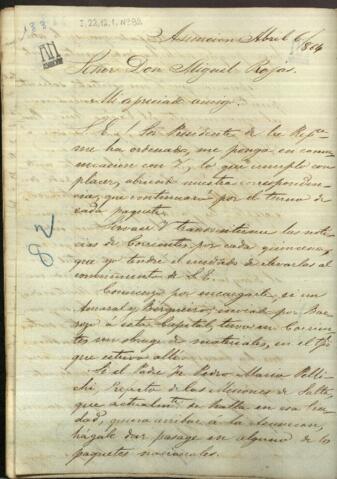 188
I,22,12,1, Nº 98
Asuncion Abril 6/864
Señor Don Miguel Rojas.
Mi apreciado amigo.
S. E. el Sor Presidente de la Repca
me ha ordenado, me ponga en comu-
nicacion con V, lo que cumplo con
placer, abriendo nuestra corresponden-
cia, que continuará por el turno de
cada paquete.
Sirvase V transmitirme las noti-
cias de Corrientes por cada quincena,
que yo tendré el cuidado de elevarlas al
conocimiento de S. E.
82
Comienzo por encargarle, si un
Amaral y Bergueiros, enviado por
a esta Capital, tuvo en Corrien-
tes de materiales, en el tpo
que estuvo alli.
Si el Padre Fr Pedro Maria Pelli-
chi Prefecto de las Misiones de Salta,
que actualmte se halla en esa Ciu-
dad, quiera arribar a la Asuncion,
hágale dar pasage en alguno de los
paquetes nacionales.